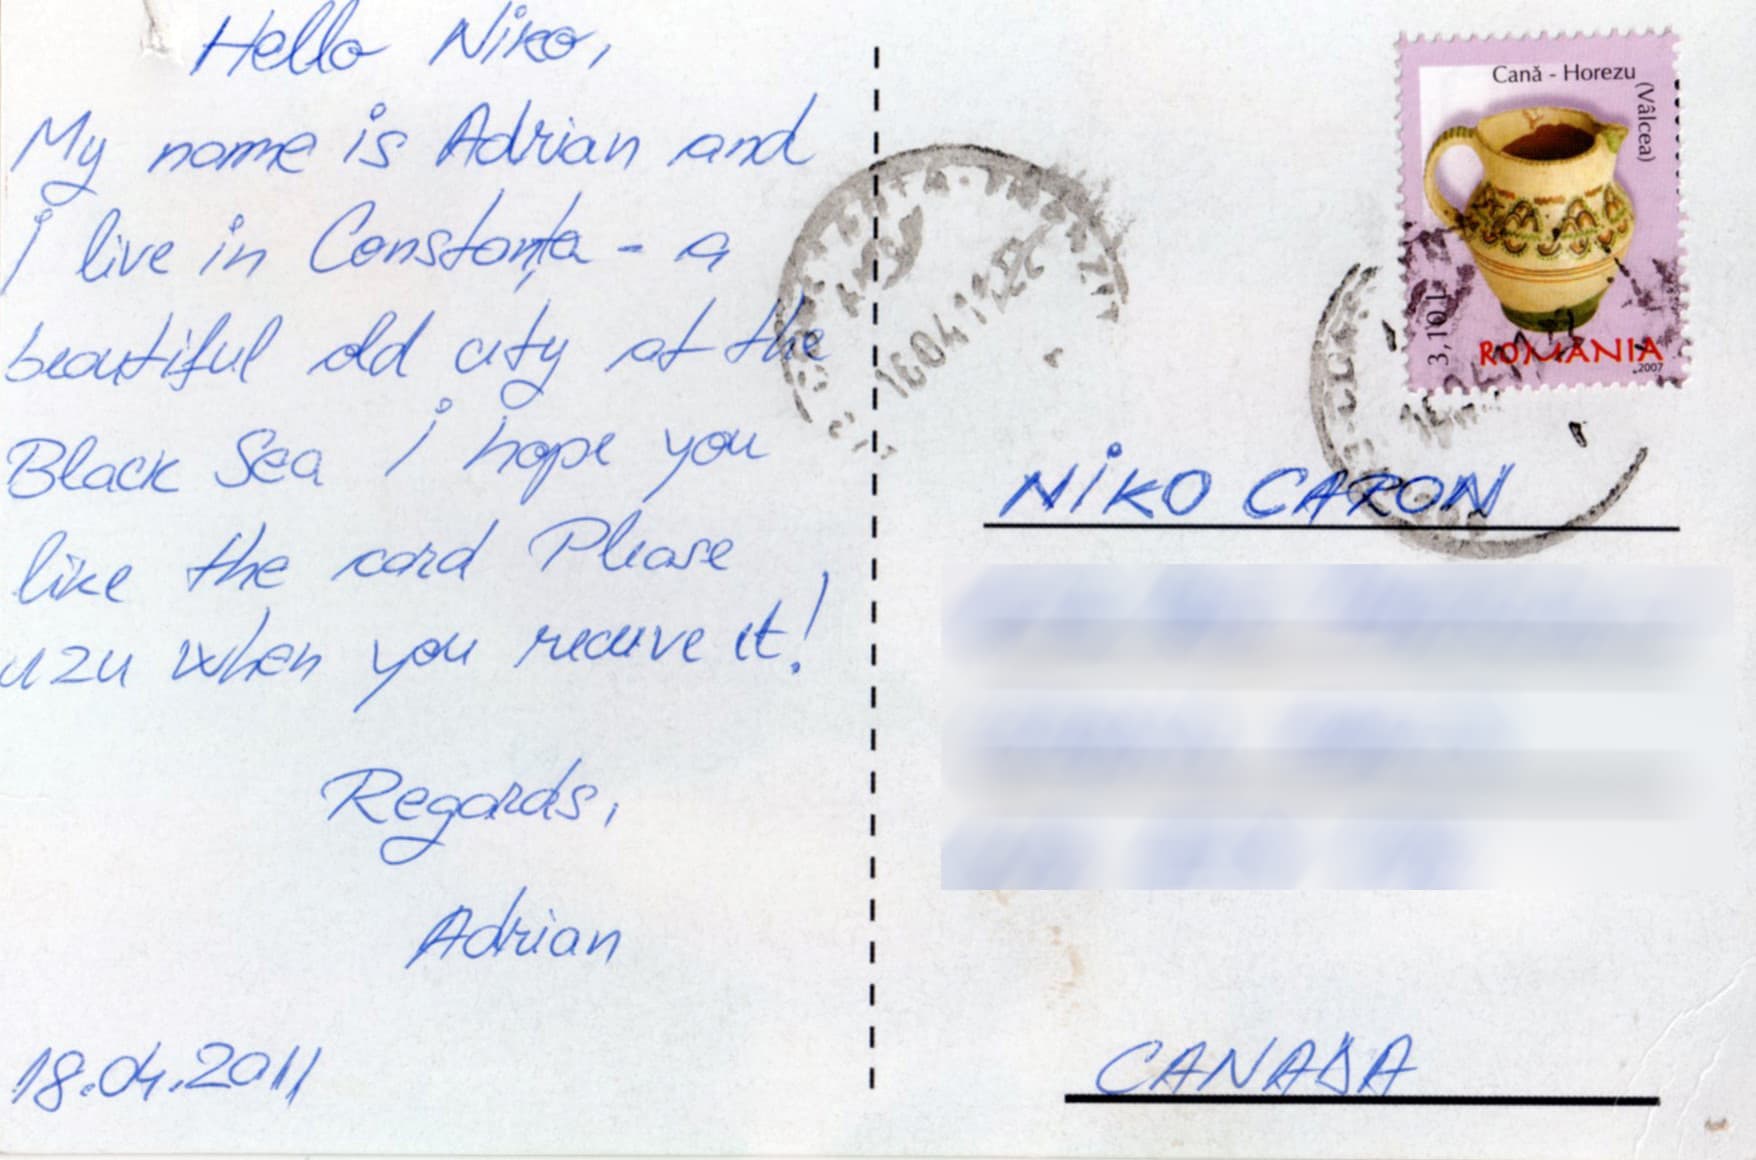 Hello Niko,
My name is Adrian and
i live in Constanța - a
beautiful old city at the
Black Sea i hope you
like the card Please
uzu when you receive it!
Regards,
Adrian
18.04.2011
Cană - Horezu
(Vâlcea)
3,10 L
ROMÂNIA
2007
NiKO CARON
CANADA